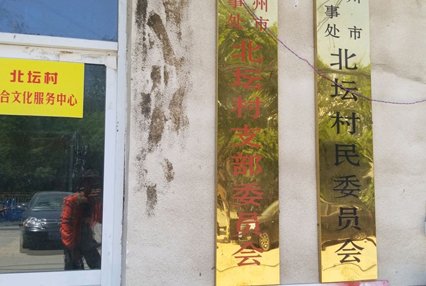 北坛村
合文化服务中心
州市
事处
北坛村支部委员会
州市
事处
北坛村民委员会